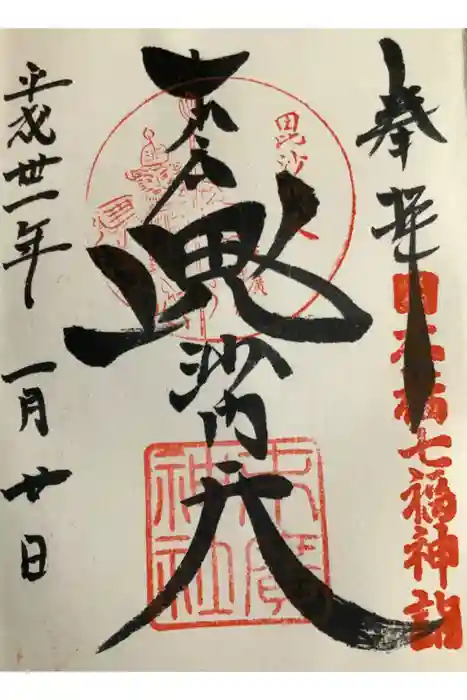 奉拝
日本橋七福神詣
末広
毘沙門天
毘沙門天
末廣
神社
平成丗一年 一月廿日